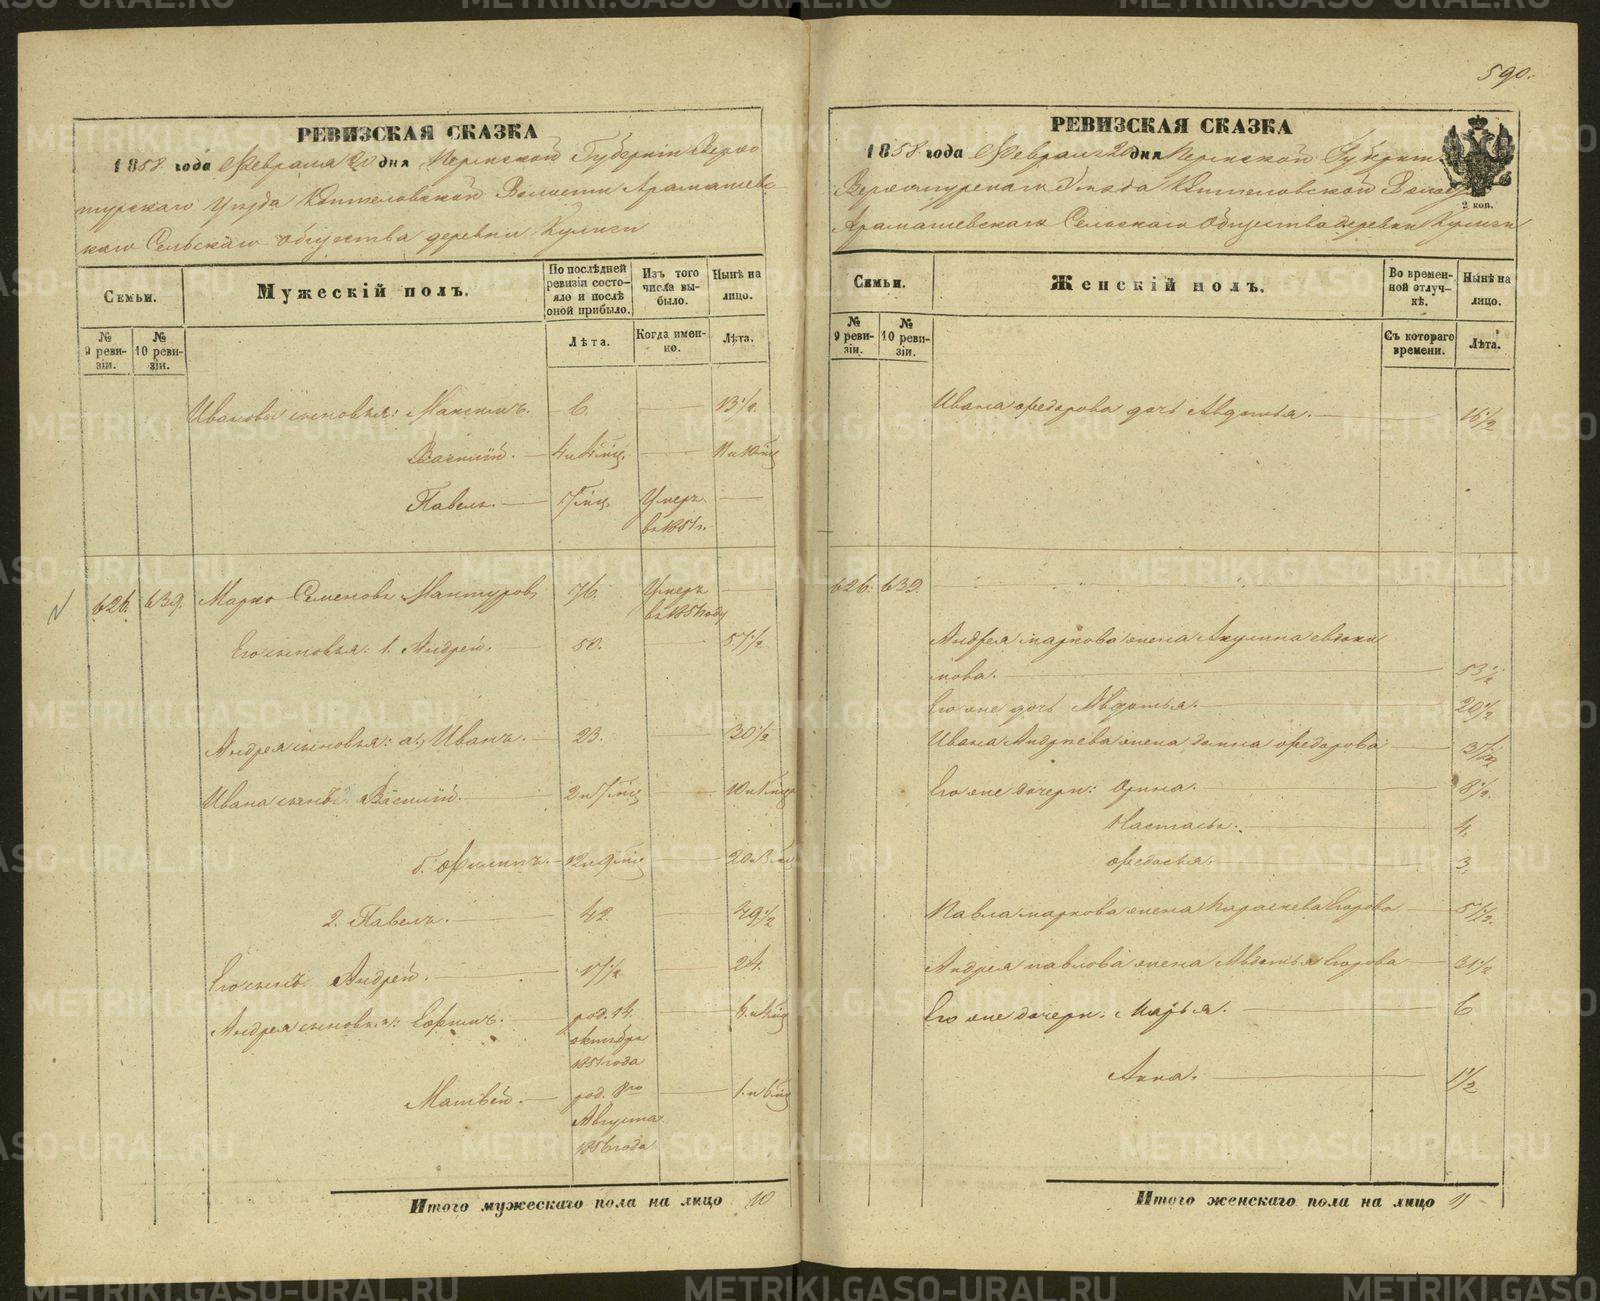 590.
РЕВИЗСКАЯ СКАЗКА
1858 года Февраля 20 дня Пермской Губернiи Верхо
турскаго Уѣзда Коптеловской Волости Арамашевс-
каго Сельскаго общества деревни Кулиги
Семьи.
Мужескiй полъ.
По послѣдней ревизiи состо-
яло и послѣ оной прибыло.
Изъ того числа вы-
было.
Нынѣ на лицо.
№ 9 реви-
зiи.
№ 10 реви-
зiи.
Лѣта.
Когда имен-
но.
Лѣта.
Ивановы сыновья: Максимъ. 6. 13 1/2
Василiй. 4 и 4 мѣц. 11 и 10 мѣц
Павелъ. 7 мѣц. Умеръ
въ 1851 г.
626. 639. Марко Семеновъ Мантуровъ 76. Умеръ
въ 1856 году
Его сыновья: 1. Андрей. 50. 57 1/2
Андрея сыновья: а, Иванъ. 23. 30 1/2
Ивана сынъ Василiй. 2 и 7 мѣц 10 и 1 мѣц
б. Филипъ. 12 и 9 мѣц 20 и 3 м
2. Павелъ. 42. 49 1/2
Его сынъ Андрей. 17 1/2 24.
Андрея сыновья: Ефимъ. род. 14. 6. и 4 мѣц
октября
1851 года
Матвѣй. род. 8го 1. и 6 мѣц
Августа
1856 года
Итого мужескаго пола на лицо 10
РЕВИЗСКАЯ СКАЗКА
1858 года Февраля 20 дня Пермской Губернiи
Верхотурскаго Уѣзда Коптеловской Волости
Арамашевскаго Сельскаго Общества деревни Кулиги
2 коп.
Семьи.
Женскiй полъ.
Во времен-
ной отлуч-
кѣ.
Нынѣ на лицо.
№ 9 реви-
зiи.
№ 10 реви-
зiи.
Съ котораго времени.
Лѣта.
Ивана Федорова дочь Авдотья. 16 1/2
626. 639.
Андрея Маркова жена Акулина Евдоки
мова. 53 1/2
Его же дочь Авдотья. 20 1/2
Ивана Андреева жена Домна Федорова 31 1/2
Его же дочери: Орина. 8 1/2.
Настасья. 4.
Федосья. 3.
Павла Маркова жена Параскева Егорова 51 1/2.
Андрея Павлова жена Авдотья Егорова 31 1/2
Его же дочери. Марья. 6
Анна. 1 1/2
Итого женскаго пола на лицо 11
METRIKI.GASO-URAL.RU